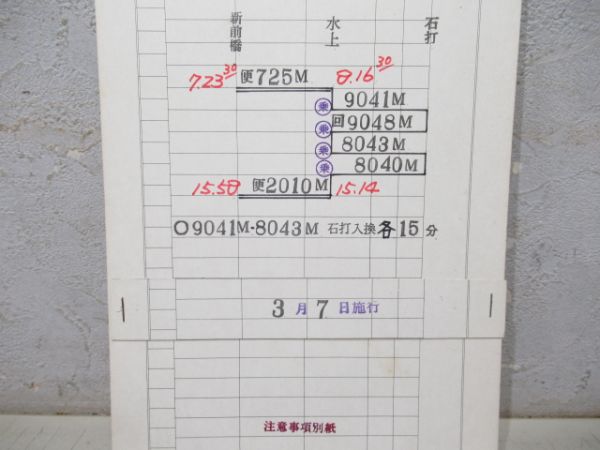 新前橋 水上 石打
7.23 30 便725M 8.16 30
乗 9041M
乗 回9048M
乗 8043M
乗 8040M
15.58 便2010M 15.14
○9041M・8043M 石打入換各15分
3月7日施行
注意事項別紙